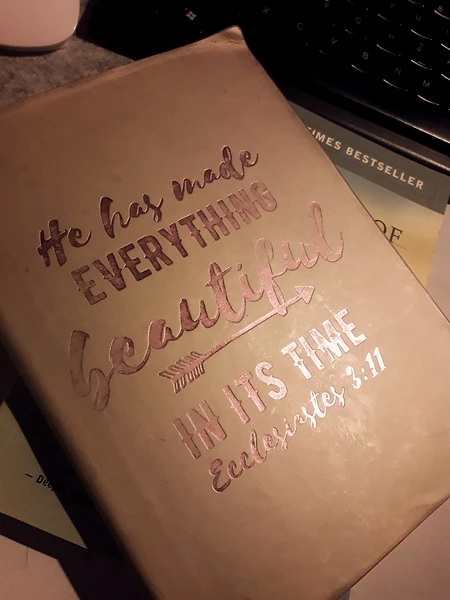 He has made
EVERYTHING
beautiful
IN ITS TIME
Ecclesiastes 3:11
TIMES BESTSELLER
OF